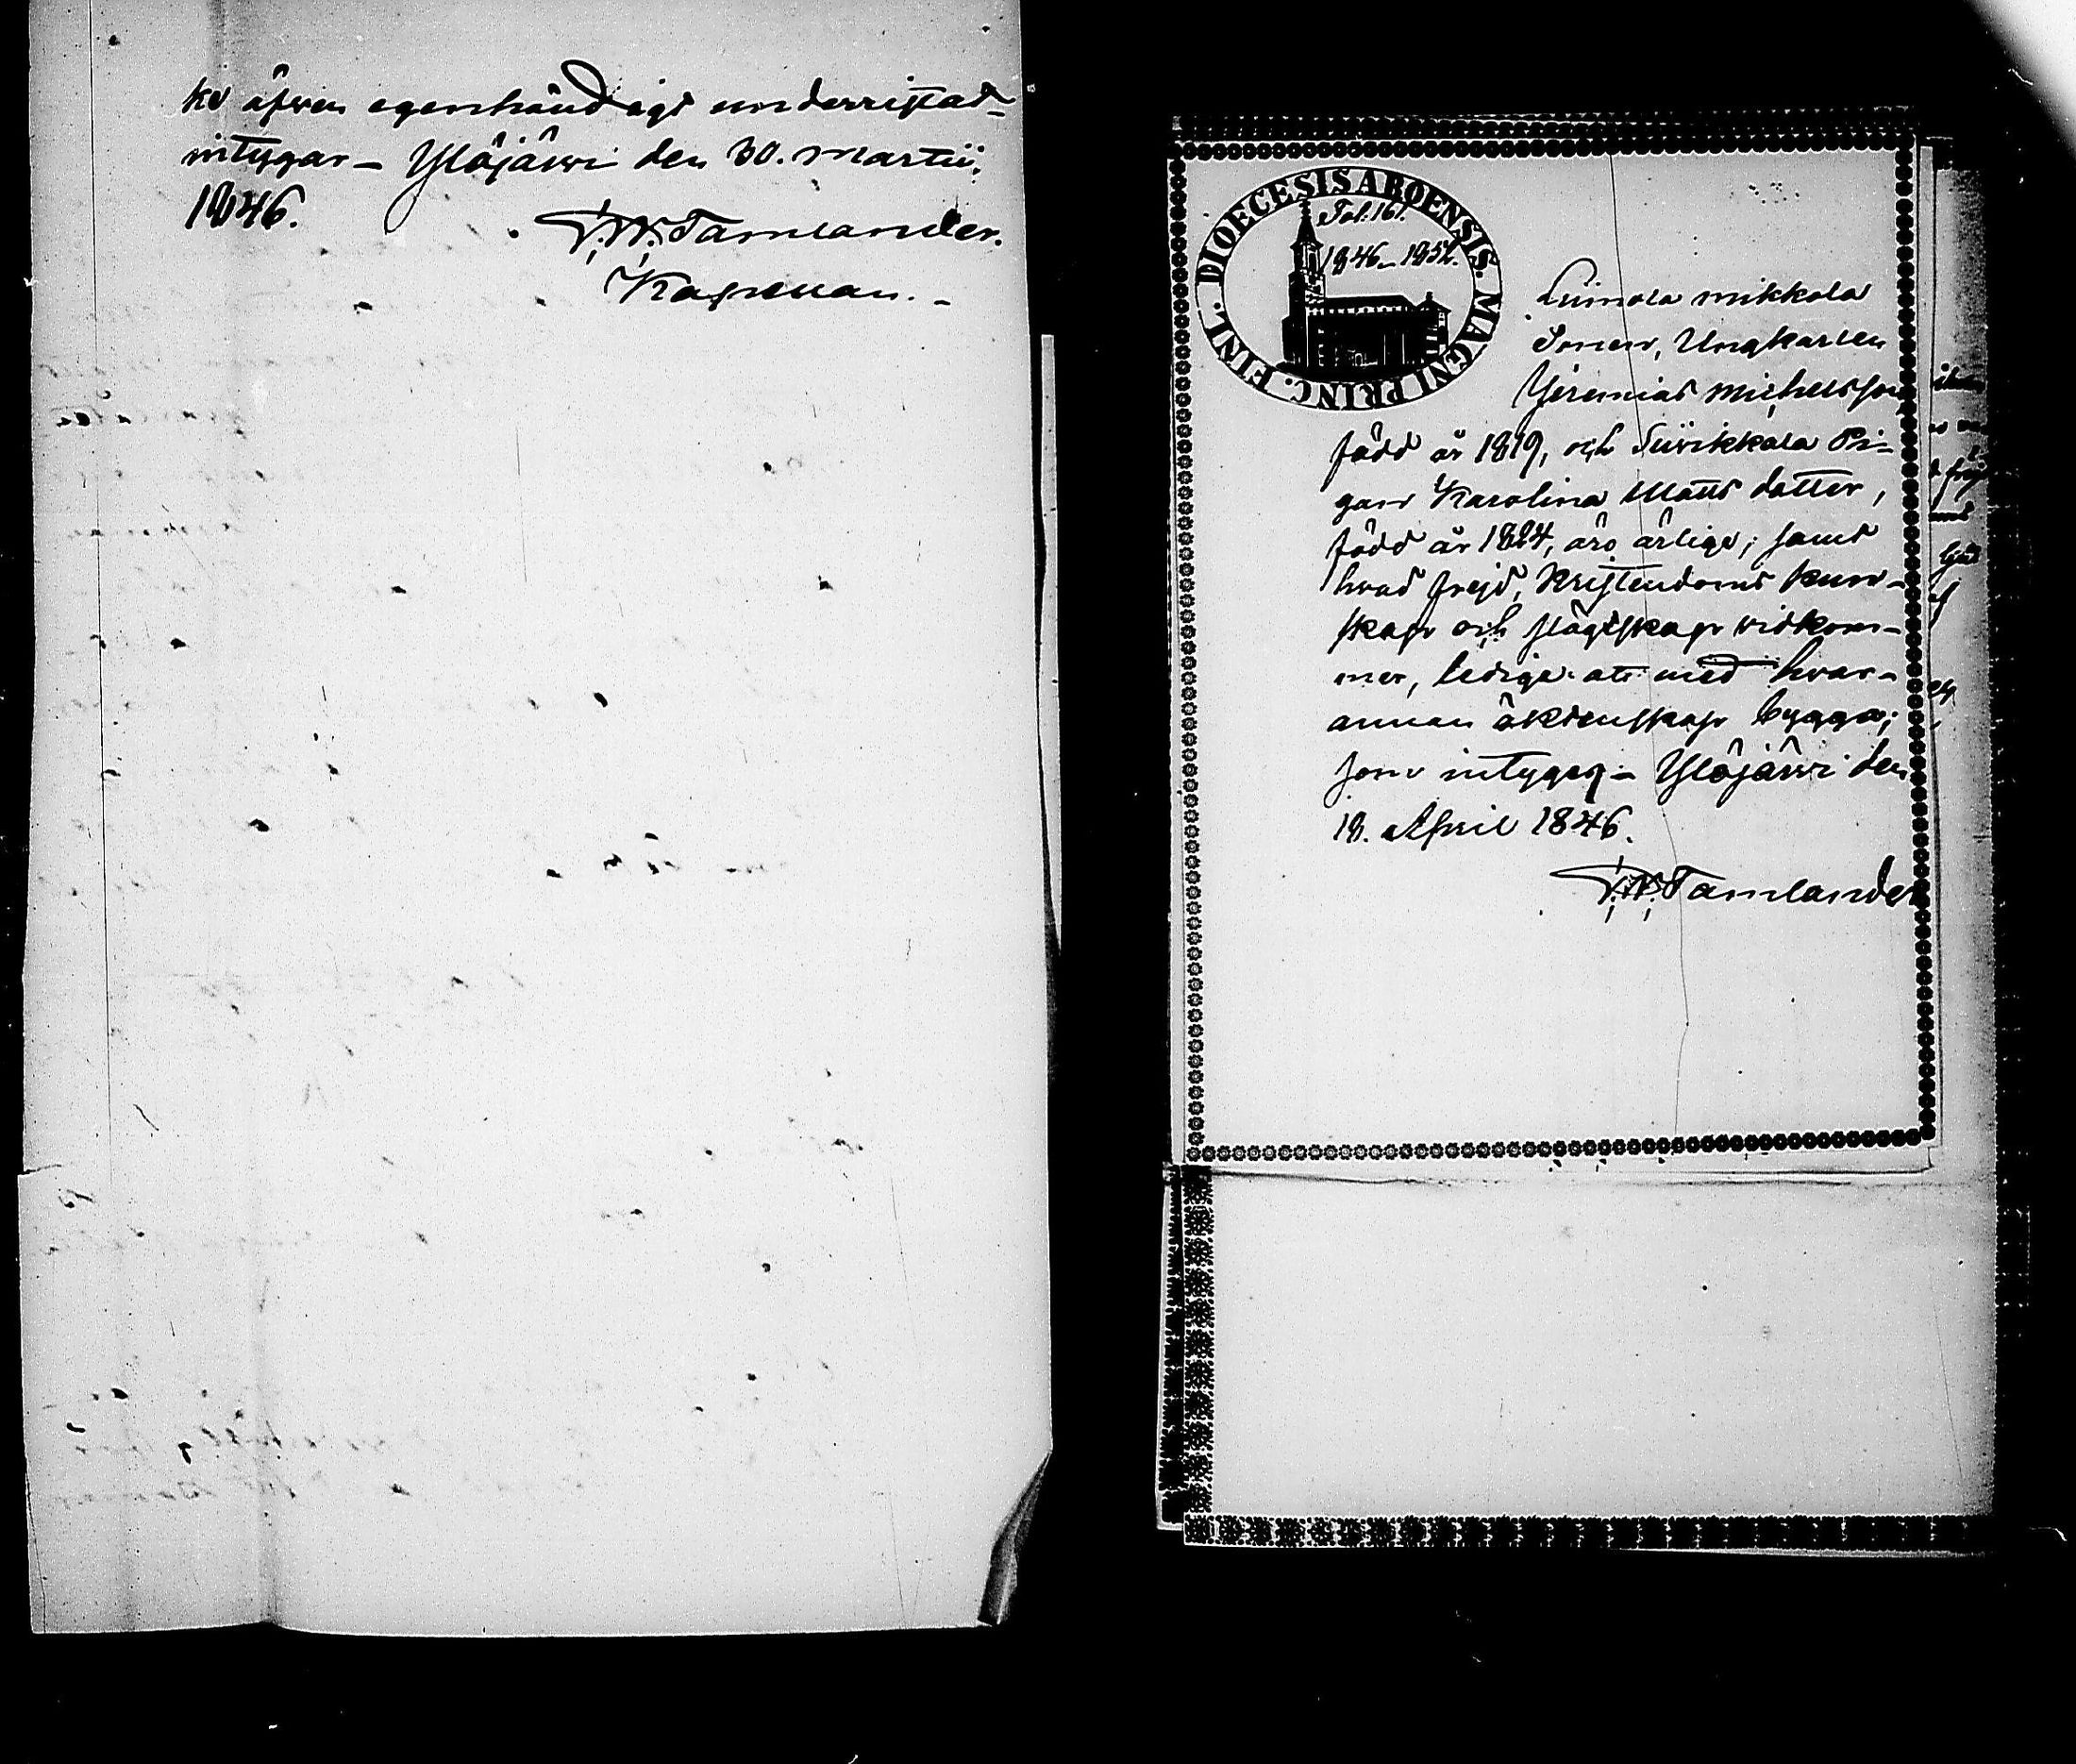 ke äfwen egenhändigt underristat-
intygar – Ylöjärwi den 30. Martii.
1846.
Tamlander.
Kapellan. –
DIOECESIS ABOENSIS. MAGNI PRINC. FINL.
Fol: 161.
1846– 1852.
Luimola Mikkola
Sonen, Ungkarlen
Jeremias Michelsson
född år 1819, och Siivikkala Pi-
gan Karolina Matts dotter,
född år 1824, äro ärlige; samt
hvad frejd, Kristendoms kun-
skap och slägtskap widkom-
mer, ledige att med hvar-
annan äktenskap bygga;
som intygas – Ylöjärwi den
18. April 1846.
Tamlander